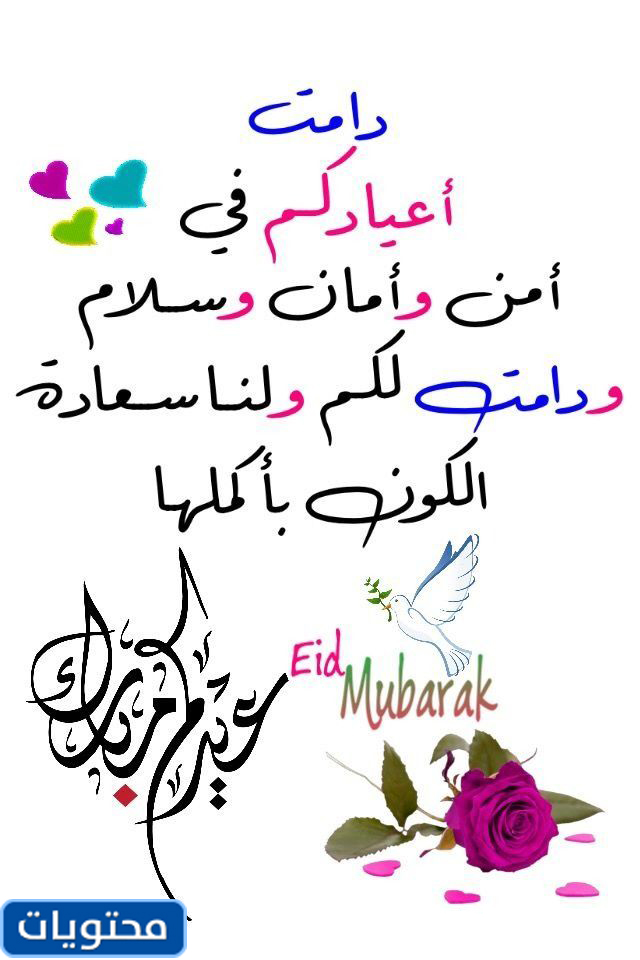 دامت
أعيادكم في
أمن وأمان وسلام
ودامت لكم ولنا سعادة
الكون بأكملها
عيدكم مبارك
Eid
Mubarak
محتويات